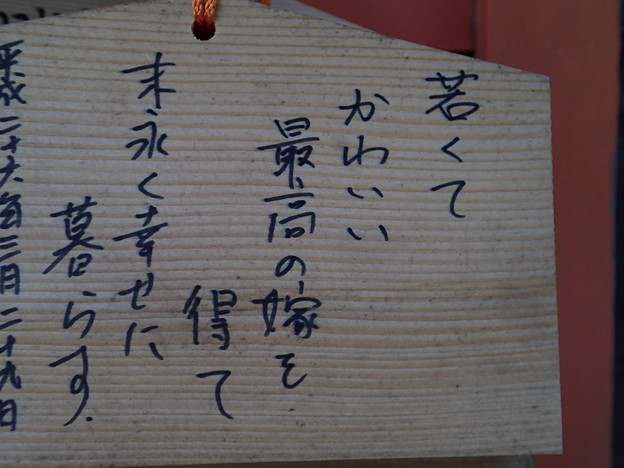 若くて
かわいい
最高の嫁を
得て
末永く幸せに
暮らす.
平成二十六年三月二十九日